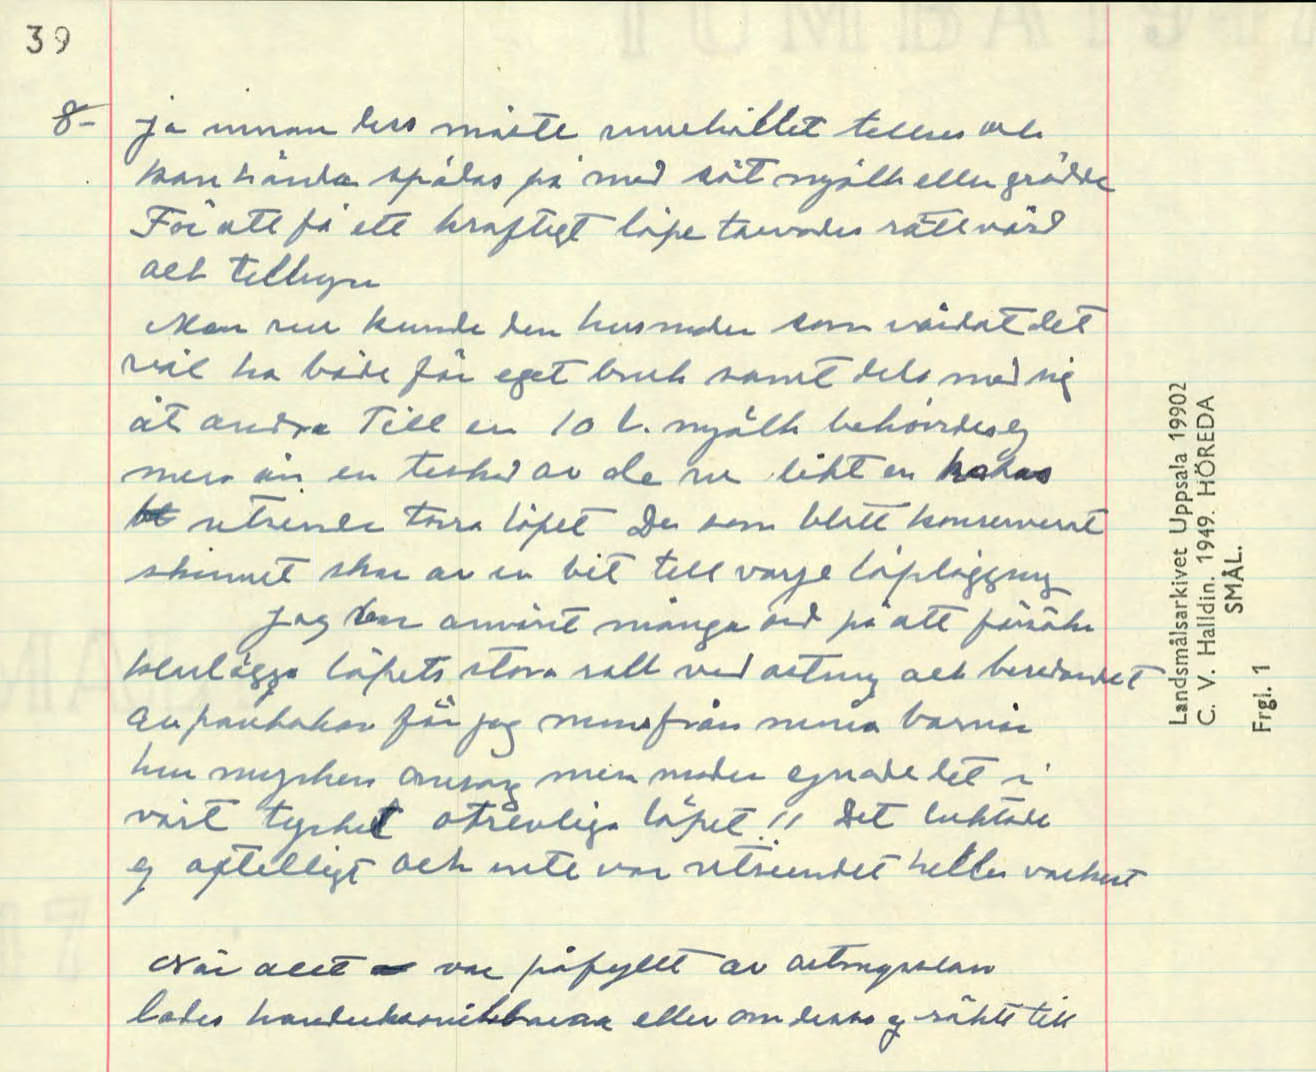 39
8-
ja innan dess måste innehållet tillses och
kan hända spädas på med söt mjölk eller grädde
För att få ett kraftigt löpe tarvades rätt vård
och tillsyn
Men nu kunde den husmoder som vårdat det
väl ha både för eget bruk samt dela med sig
åt andra Till en 10 l. mjölk behövdes ej
mera än en tesked av de nu likt en kakas
utseende torra löpet Den som blott konserverat
skinnet skar av en bit till varje löpläggning
Jag har använt många ord på att försöka
klarlägga löpets stora roll vid ostning och beredandet
av pankakor för jag minns från mina barnår
hur mycken omsorg min moder egnade det i
vårt tycke otrevliga löpet !! Det luktade
ej aptitligt och inte var utseendet heller vackert
När allt var påfyllt av
lades eller om dessa ej räckte till
Landsmålsarkivet Uppsala 19902
C. V. Halldin. 1949. HÖREDA
SMÅL.
Frgl. 1